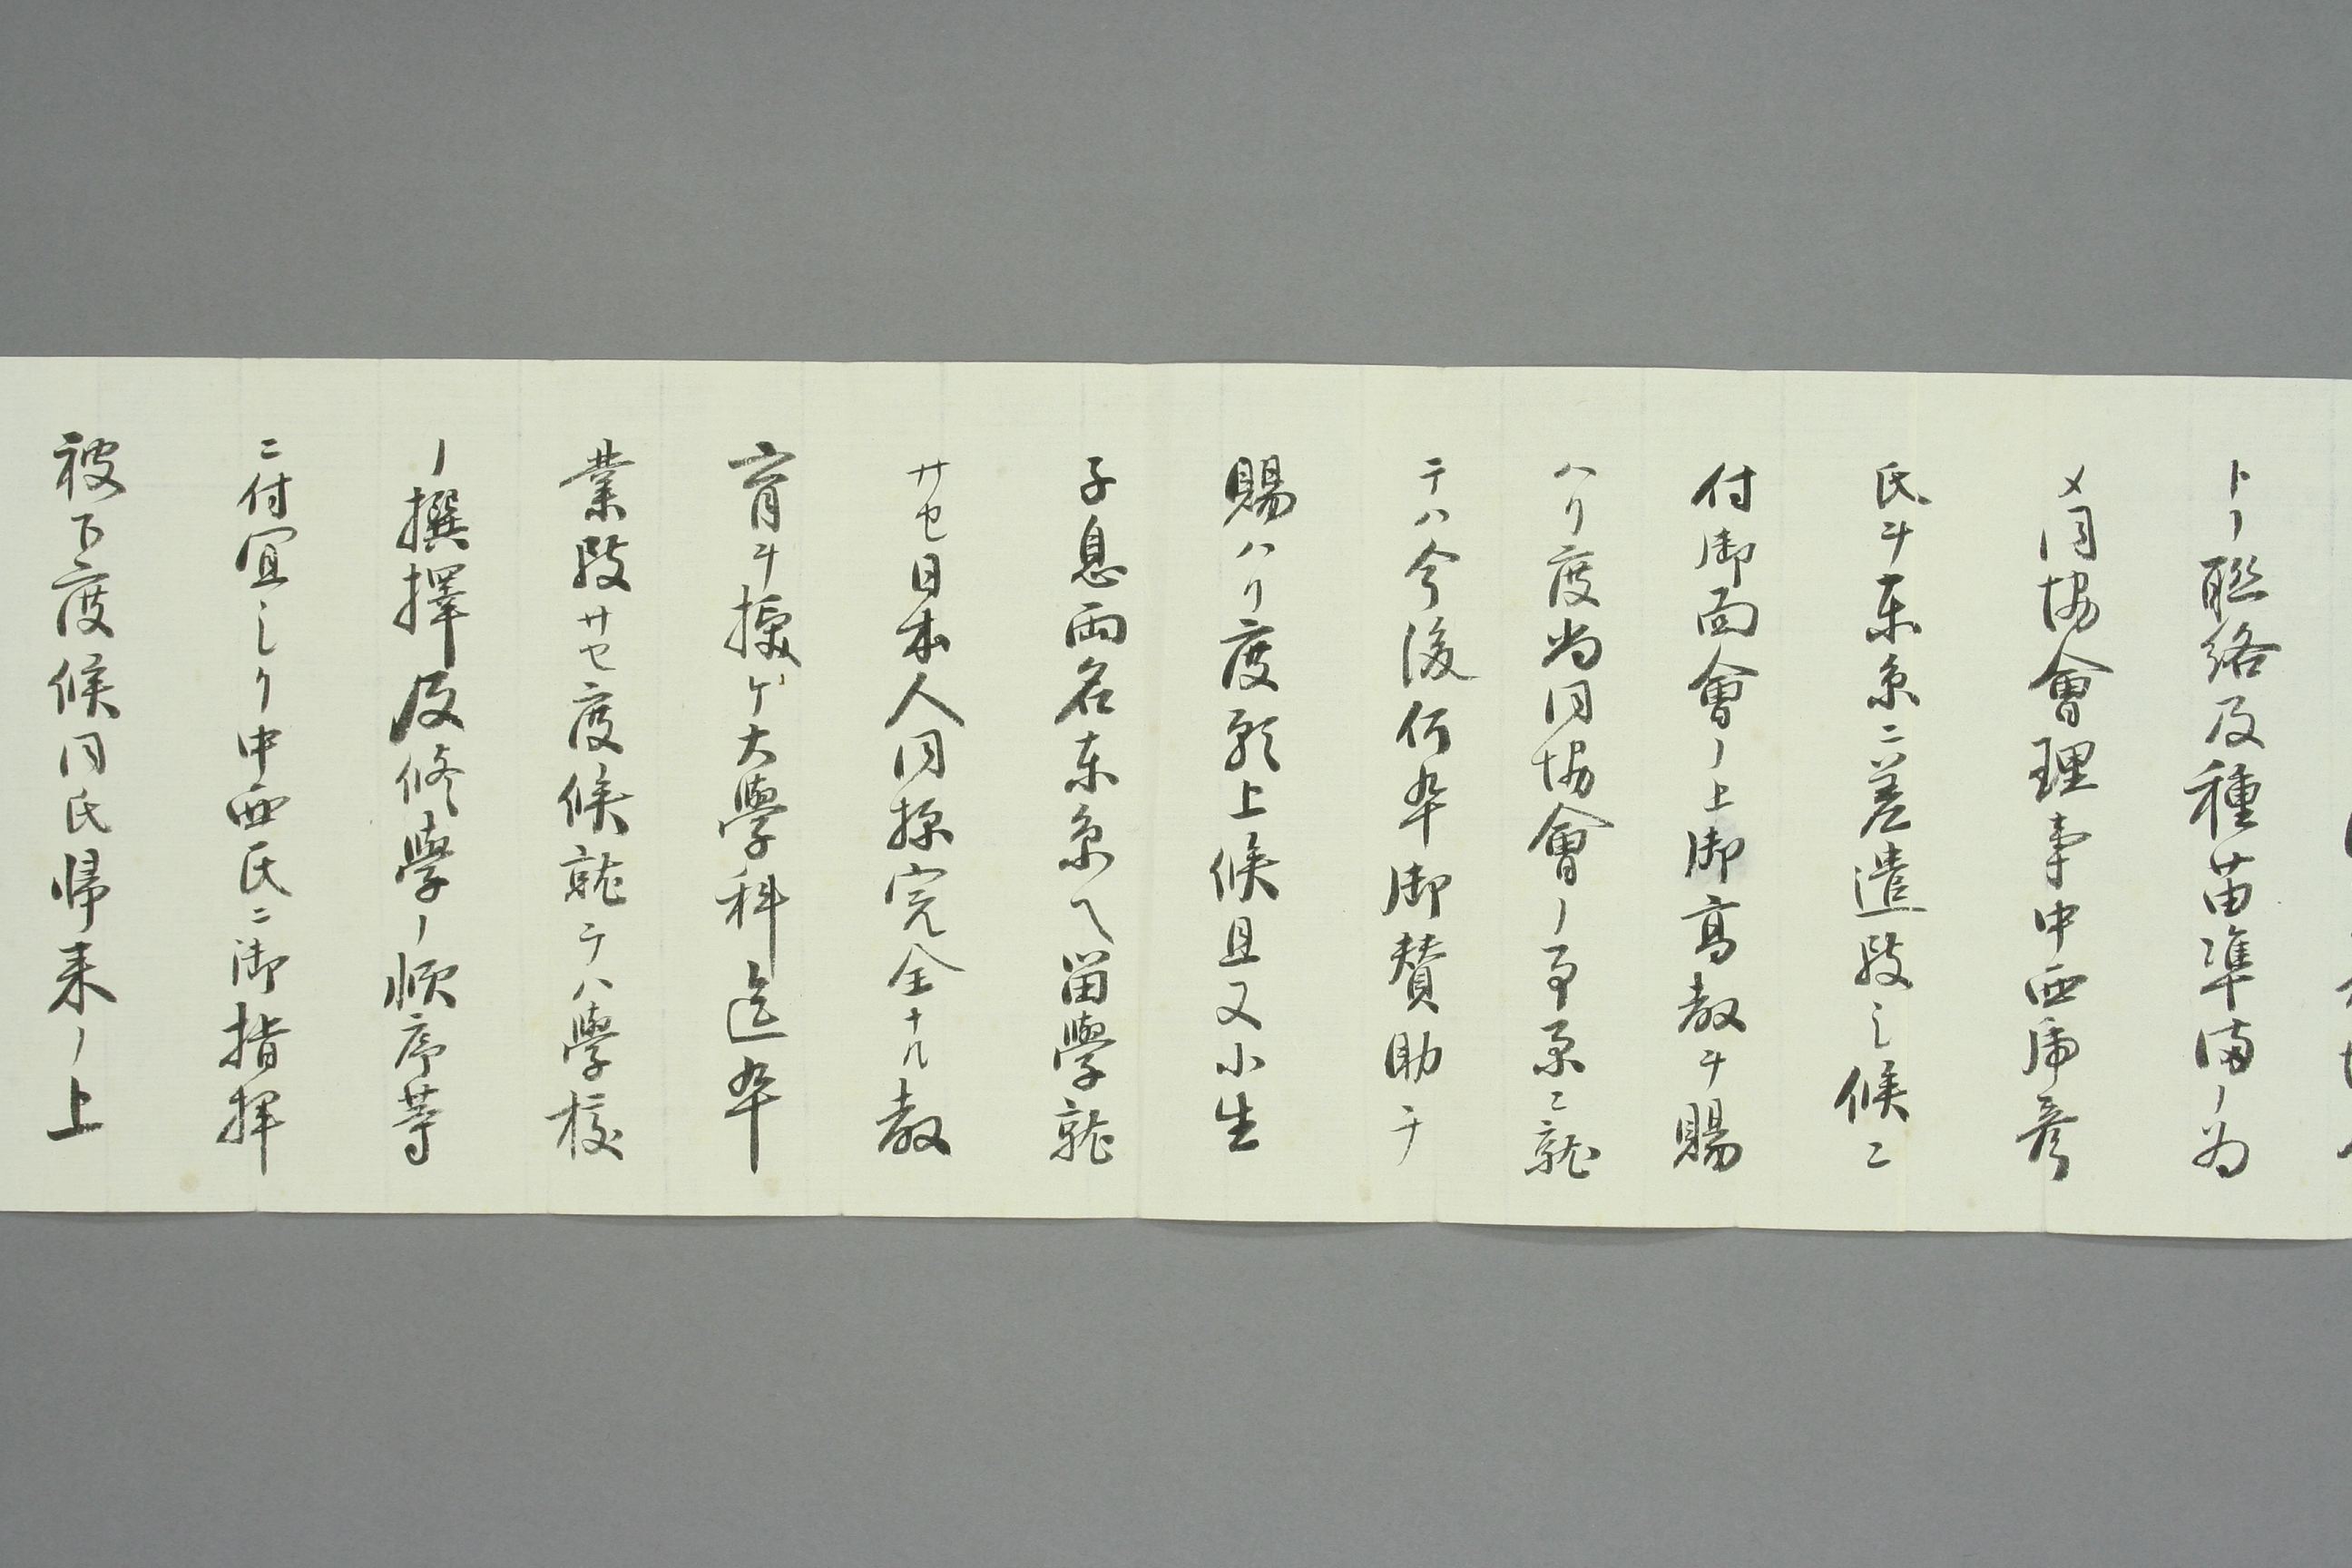 トノ聯絡及種苗準備ノ為
メ同協會理事中西甫彦
氏ヲ東京ニ差遣致し候ニ
付御面會ノ上御高教ヲ賜
ハリ度尚同協會ノ事業ニ就
テハ今後何卒御賛助ヲ
賜ハリ度願上候且又小生
子息両名東京ヘ留學就
サセ日本人同様完全ナル教
育ヲ授ケ大學科迄卒
業致サセ度候就テハ學校
ノ撰擇及修學ノ順序等
ニ付宜しク中西氏ニ御指揮
被下度候同氏帰来ノ上